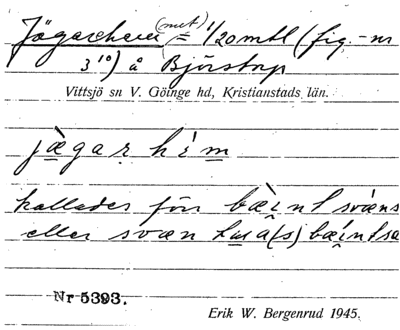 Jägarehem (nut.) = 1/20 mtl (fig.-nr
3¹⁰) å Björstorp
Vittsjö sn V. Göinge hd, Kristianstads län.
jægar hem
kallades förr bæint svæns
eller svæn
Nr 5393.
Erik W. Bergenrud 1945.